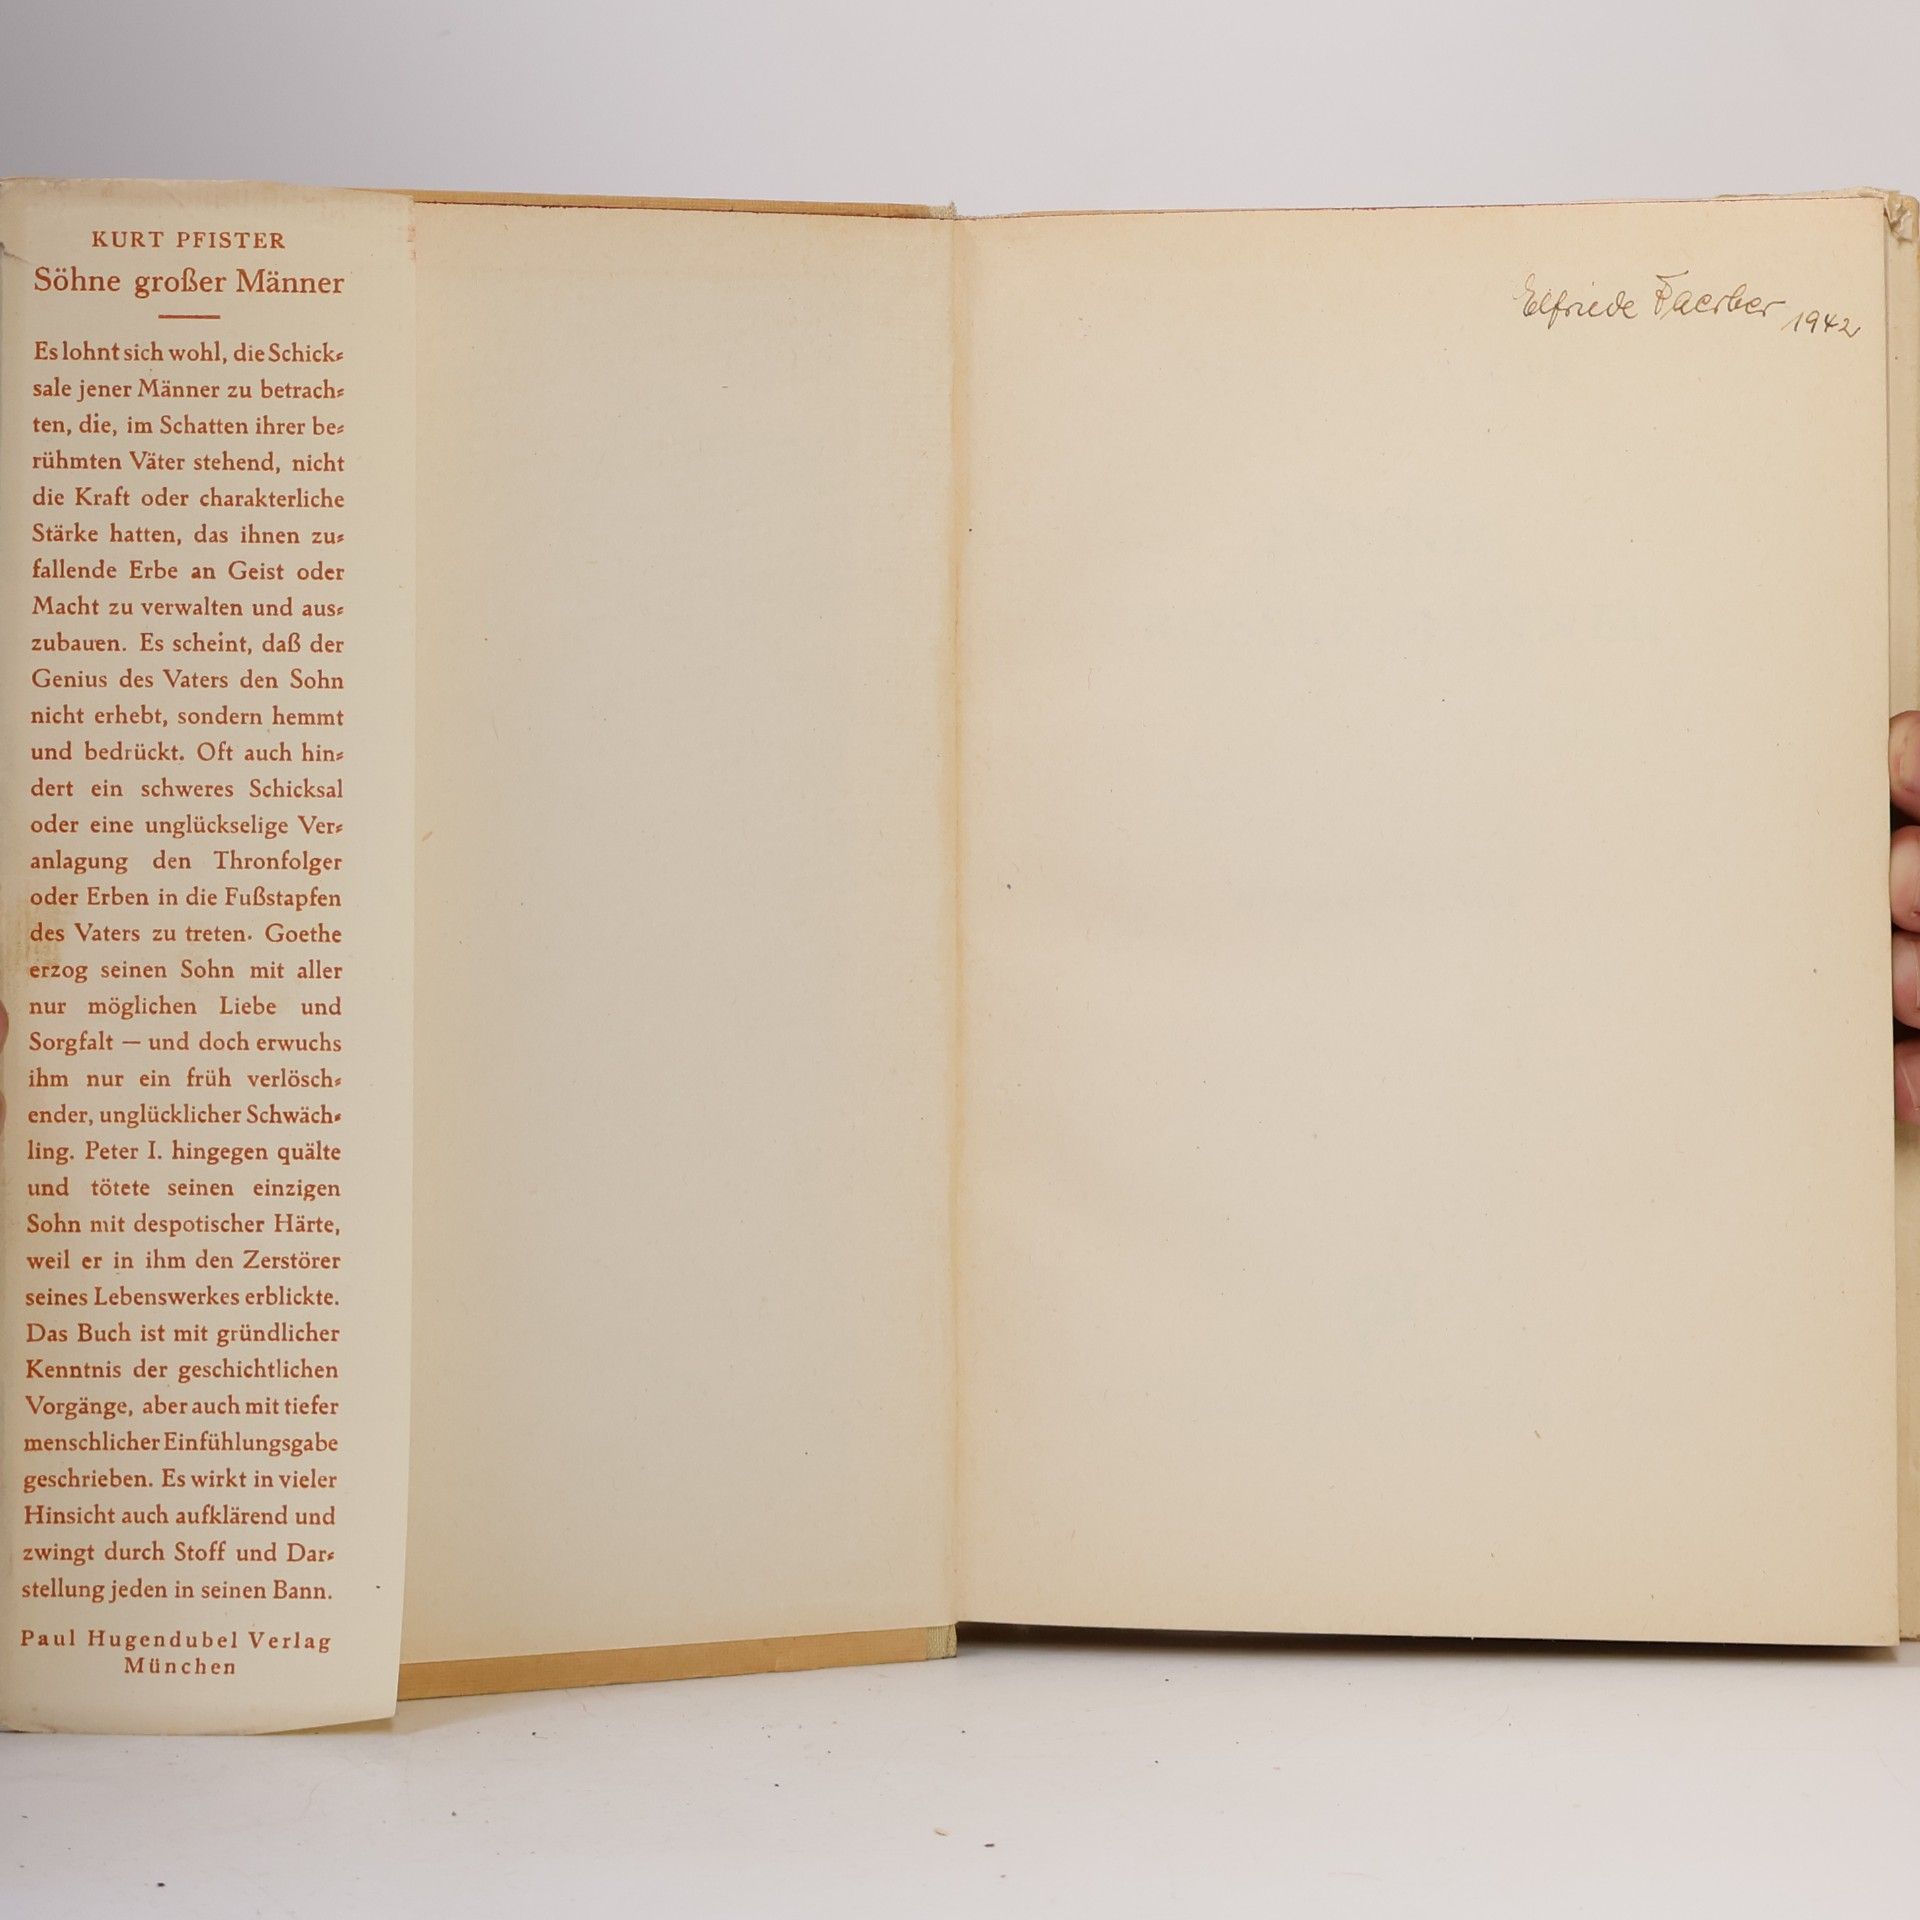 KURT PFISTER
Söhne großer Männer
Es lohnt sich wohl, die Schick-
sale jener Männer zu betrach-
ten, die, im Schatten ihrer be-
rühmten Väter stehend, nicht
die Kraft oder charakterliche
Stärke hatten, das ihnen zu-
fallende Erbe an Geist oder
Macht zu verwalten und aus-
zubauen. Es scheint, daß der
Genius des Vaters den Sohn
nicht erhebt, sondern hemmt
und bedrückt. Oft auch hin-
dert ein schweres Schicksal
oder eine unglückselige Ver-
anlagung den Thronfolger
oder Erben in die Fußstapfen
des Vaters zu treten. Goethe
erzog seinen Sohn mit aller
nur möglichen Liebe und
Sorgfalt — und doch erwuchs
ihm nur ein früh verlösch-
ender, unglücklicher Schwäch-
ling. Peter I. hingegen quälte
und tötete seinen einzigen
Sohn mit despotischer Härte,
weil er in ihm den Zerstörer
seines Lebenswerkes erblickte.
Das Buch ist mit gründlicher
Kenntnis der geschichtlichen
Vorgänge, aber auch mit tiefer
menschlicher Einfühlungsgabe
geschrieben. Es wirkt in vieler
Hinsicht auch aufklärend und
zwingt durch Stoff und Dar-
stellung jeden in seinen Bann.
Paul Hugendubel Verlag
München
Elfriede Faerber 1942